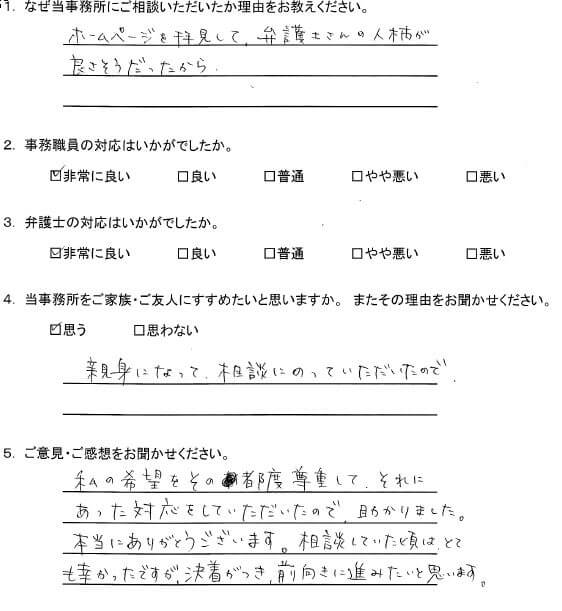 1. なぜ当事務所にご相談いただいたか理由をお教えください。
ホームページを拝見して、弁護士さんの人柄が
良さそうだったから.
2. 事務職員の対応はいかがでしたか。
☑非常に良い □良い □普通 □やや悪い □悪い
3. 弁護士の対応はいかがでしたか。
☑非常に良い □良い □普通 □やや悪い □悪い
4. 当事務所をご家族・ご友人にすすめたいと思いますか。 またその理由をお聞かせください。
☑思う □思わない
親身になって、相談にのっていただいたので.
5. ご意見・ご感想をお聞かせください。
私の希望をその都度尊重して、それに
あった対応をしていただいたので、助かりました。
本当にありがとうございます。相談していた頃は、とて
も辛かったですが、決着がつき、前向きに進みたいと思います。